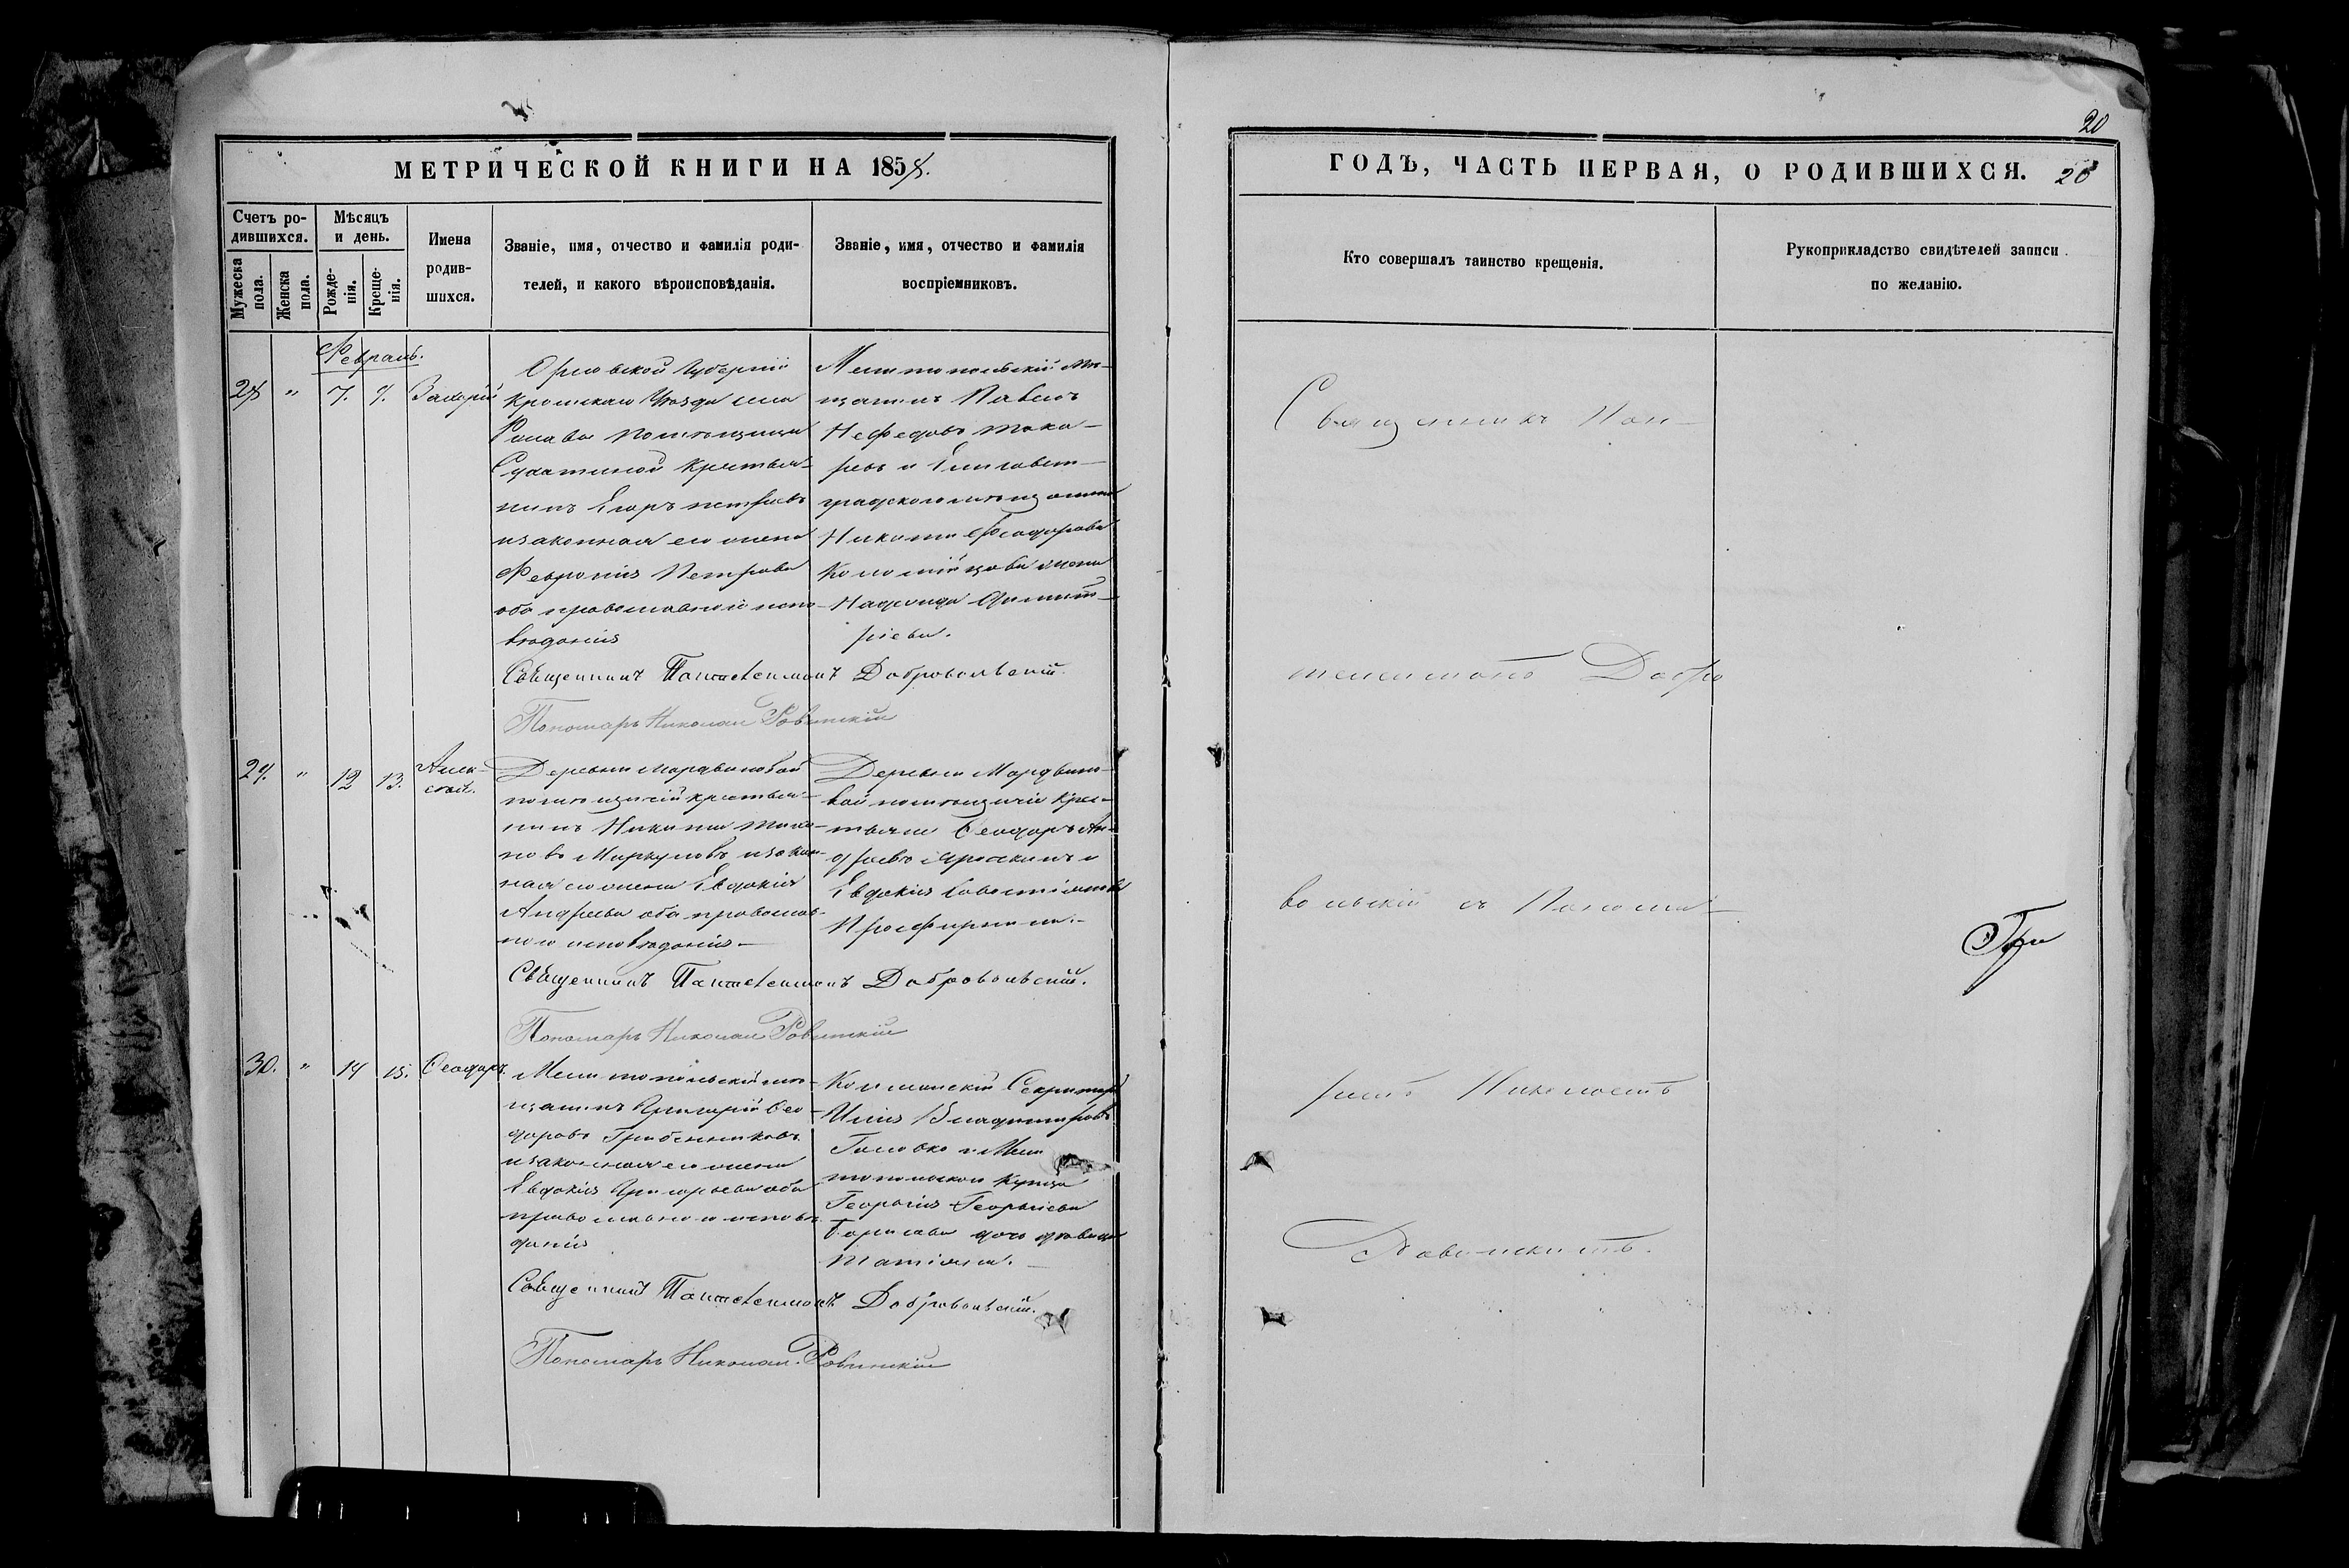 МЕТРИЧЕСКОЙ КНИГИ НА 1858.
Счетъ ро-
дившихся.
Мѣсяцъ
и день.
Мужеска
пола.
Женска
пола.
Рожде-
нія.
Креще-
нія.
Имена
родив-
шихся.
Званіе, имя, отчество и фамилія роди-
телей, и какого вѣроисповѣданія.
Званіе, имя, отчество и фамилія
воспріемниковъ.
Февраль.
28 " 7. 9. Захарій
Орловской Губерніи
Кромскаго Уѣзда села
помѣщицы
крестья-
нинъ Егоръ
изаконная его жена
Февронія Петрова
оба православнаго испо-
вѣданія
Мелитопольскій мѣ-
щанинъ Павелъ
Нефедовъ Тока-
ревъ и Елисавет-
градскаго мѣщанина
Никиты Феодорова
Коломійцова жена
Надежда Димит-
ріева.
Священникъ Пантелеимонъ Добровольскій.
Пономарь Николай Ровинскій
29. " 12 13. Алек-
сѣй.
Деревни Мордвиновой
помѣщичій крестья-
нинъ Никита
Маркуловъ изакон-
ная его жена Евдокія
Андреева оба православ-
наго исповѣданія
Деревни Мордвино-
вой помѣщичій крес-
тьянинъ Ѳеодоръ Ан-
дреевъ и
Евдокія
Священникъ Пантелеимонъ Добровольскій.
Пономарь Николай Ровинскій
30. " 14 15. Ѳеодоръ.
Мелитопольскій мѣ-
щанинъ Григорій Ѳео-
доровъ Гребенниковъ
изаконная его жена
Евдокія Григорьева оба
православнаго исповѣ-
данія
Секретарь
Илія Владиміровъ
Головко и Мели
топольскаго Купца
Георгія Георгіева
Борисова дочь дѣвица
Священникъ Пантелеимонъ Добровольскій.
Пономарь Николай Ровинскій
20
ГОДЪ, ЧАСТЬ ПЕРВАЯ, О РОДИВШИХСЯ. 20
Кто совершалъ таинство крещенія.
Рукоприкладство свидѣтелей записи
по желанію.
Священникъ Пан-
телеимонъ Добро
вольскій съ Понома-
ремъ Николаемъ
Ровинскимъ.